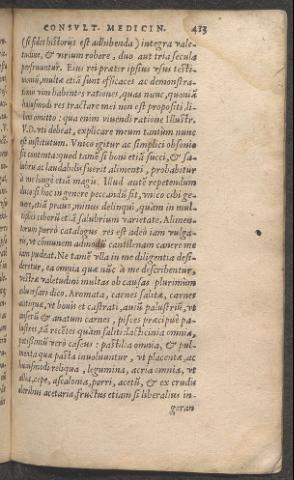 CONSVLT. MEDICIN. 413
(si fides historijs est adhibenda) integra vale-
tudine, & virium robore, duo aut tria secula
peruixerunt. Eius rei præter ipsius vsus testi-
moniũ, multæ etiã sunt efficaces ac demonstra-
tionis vim habentes rationes, quas nunc, quoniã
huiusmodi res tractare mei non est propositi, li-
bens omitto: qua enim viuendi ratione Illustr.
V.D. vti debeat, explicare meum tantùm nunc
est institutum. Vnico igitur ac simplici obsonio
sit contenta: quod tamẽ si boni etiã succi, & sa-
lubris ac laudabilis fuerit alimenti, probabitur
à me longè etiã magis. Illud autẽ repetendum
duxi: si hoc in genere peccandũ sit, vnico cibi ge-
nere, etiã prauo, minus delinqui, quàm in mul-
tiplici ciborũ et iã salubrium varietate. Alimen-
torum porrò catalogus res est adeò iam vulga-
ris, vt cõmunem admodũ cantilenam canere me
iam pudeat. Ne tamẽ vlla in me diligentia desi-
deretur, ea omnia quæ nũc à me describentur,
vestræ valetudini multas ob causas plurimùm
aduersari dico. Aromata, carnes salitæ, carnes
antiquæ, vt bouis et castrati, auiũ palustriũ, vt
anserũ & anatum carnes, pisces præcipuè pa-
lustres, tã recẽtes quàm saliti: lacticinia omnia,
potissimũ verò caseus: pastilla omnia, & pul-
menta quæ pasta inuoluuntur, vt placentæ, ac
huiusmodi reliqua, legumina, acria omnia, vt
allia, cepe, ascalonia, porri, acetũ, & ex crudis
oleribus acetaria, fructus etiam si liberalius in-
geran